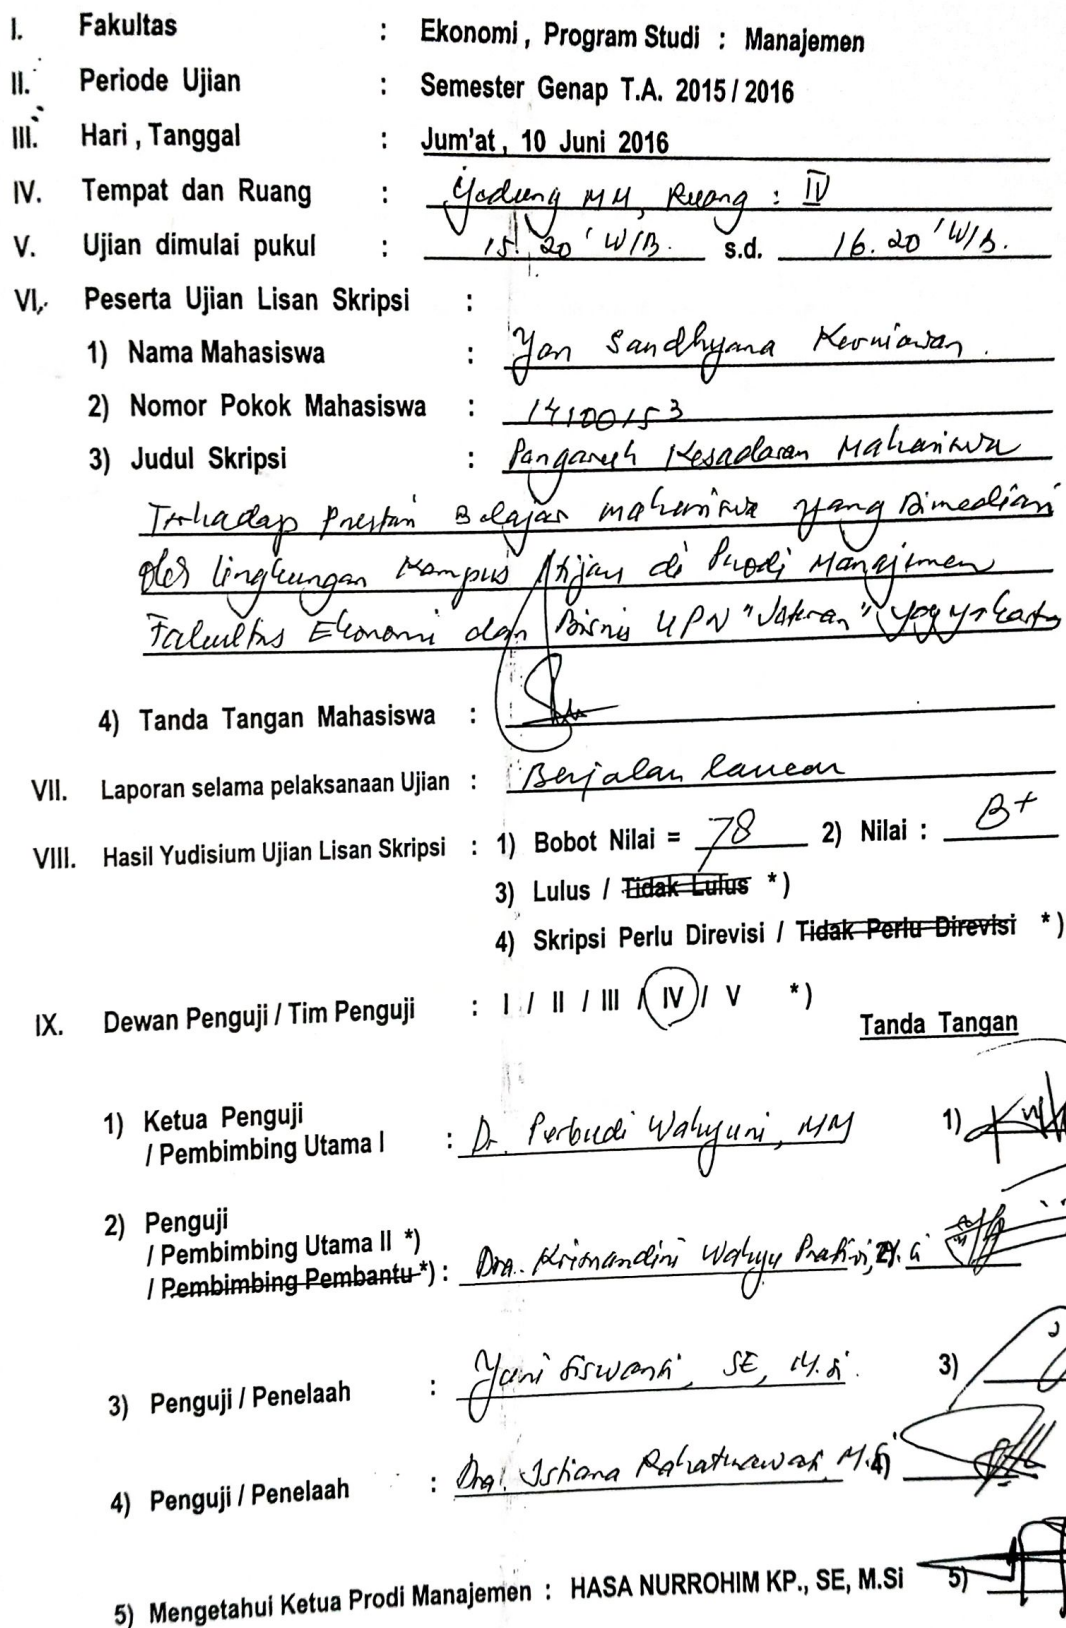 I. Fakultas : Ekonomi , Program Studi : Manajemen
II. Periode Ujian : Semester Genap T.A. 2015 / 2016
III. Hari , Tanggal : Jum'at , 10 Juni 2016
IV. Tempat dan Ruang : Gedung MM, Ruang : IV
V. Ujian dimulai pukul : 15.20 ' WIB. s.d. 16.20 ' WIB.
VI. Peserta Ujian Lisan Skripsi :
1) Nama Mahasiswa : Yan Sandhyana Kurniawan.
2) Nomor Pokok Mahasiswa : 14100153
3) Judul Skripsi : Pengaruh Kesadaran Mahasiswa
Terhadap Prestasi Belajar mahasiswa yang Dimediasi
oleh lingkungan Kampus di Prodi Manajemen
Fakultas Ekonomi dan Bisnis UPN "Veteran" Yogyakarta
4) Tanda Tangan Mahasiswa :
VII. Laporan selama pelaksanaan Ujian : Berjalan lancar
VIII. Hasil Yudisium Ujian Lisan Skripsi : 1) Bobot Nilai = 78 2) Nilai : B+
3) Lulus / Tidak Lulus *)
4) Skripsi Perlu Direvisi / Tidak Perlu Direvisi *)
IX. Dewan Penguji / Tim Penguji : I / II / III / IV / V *)
Tanda Tangan
1) Ketua Penguji
/ Pembimbing Utama I : Dr. Purbudi Wahyuni, MM 1)
2) Penguji
/ Pembimbing Utama II *)
/ Pembimbing Pembantu *) : Dra. Krisnandini Wahyu Pratiwi, 2)
3) Penguji / Penelaah : Yuni Siswanti, SE, M.Si. 3)
4) Penguji / Penelaah : Dra. Istiana Rahatmawati, M.Si 4)
5) Mengetahui Ketua Prodi Manajemen : HASA NURROHIM KP., SE, M.Si 5)